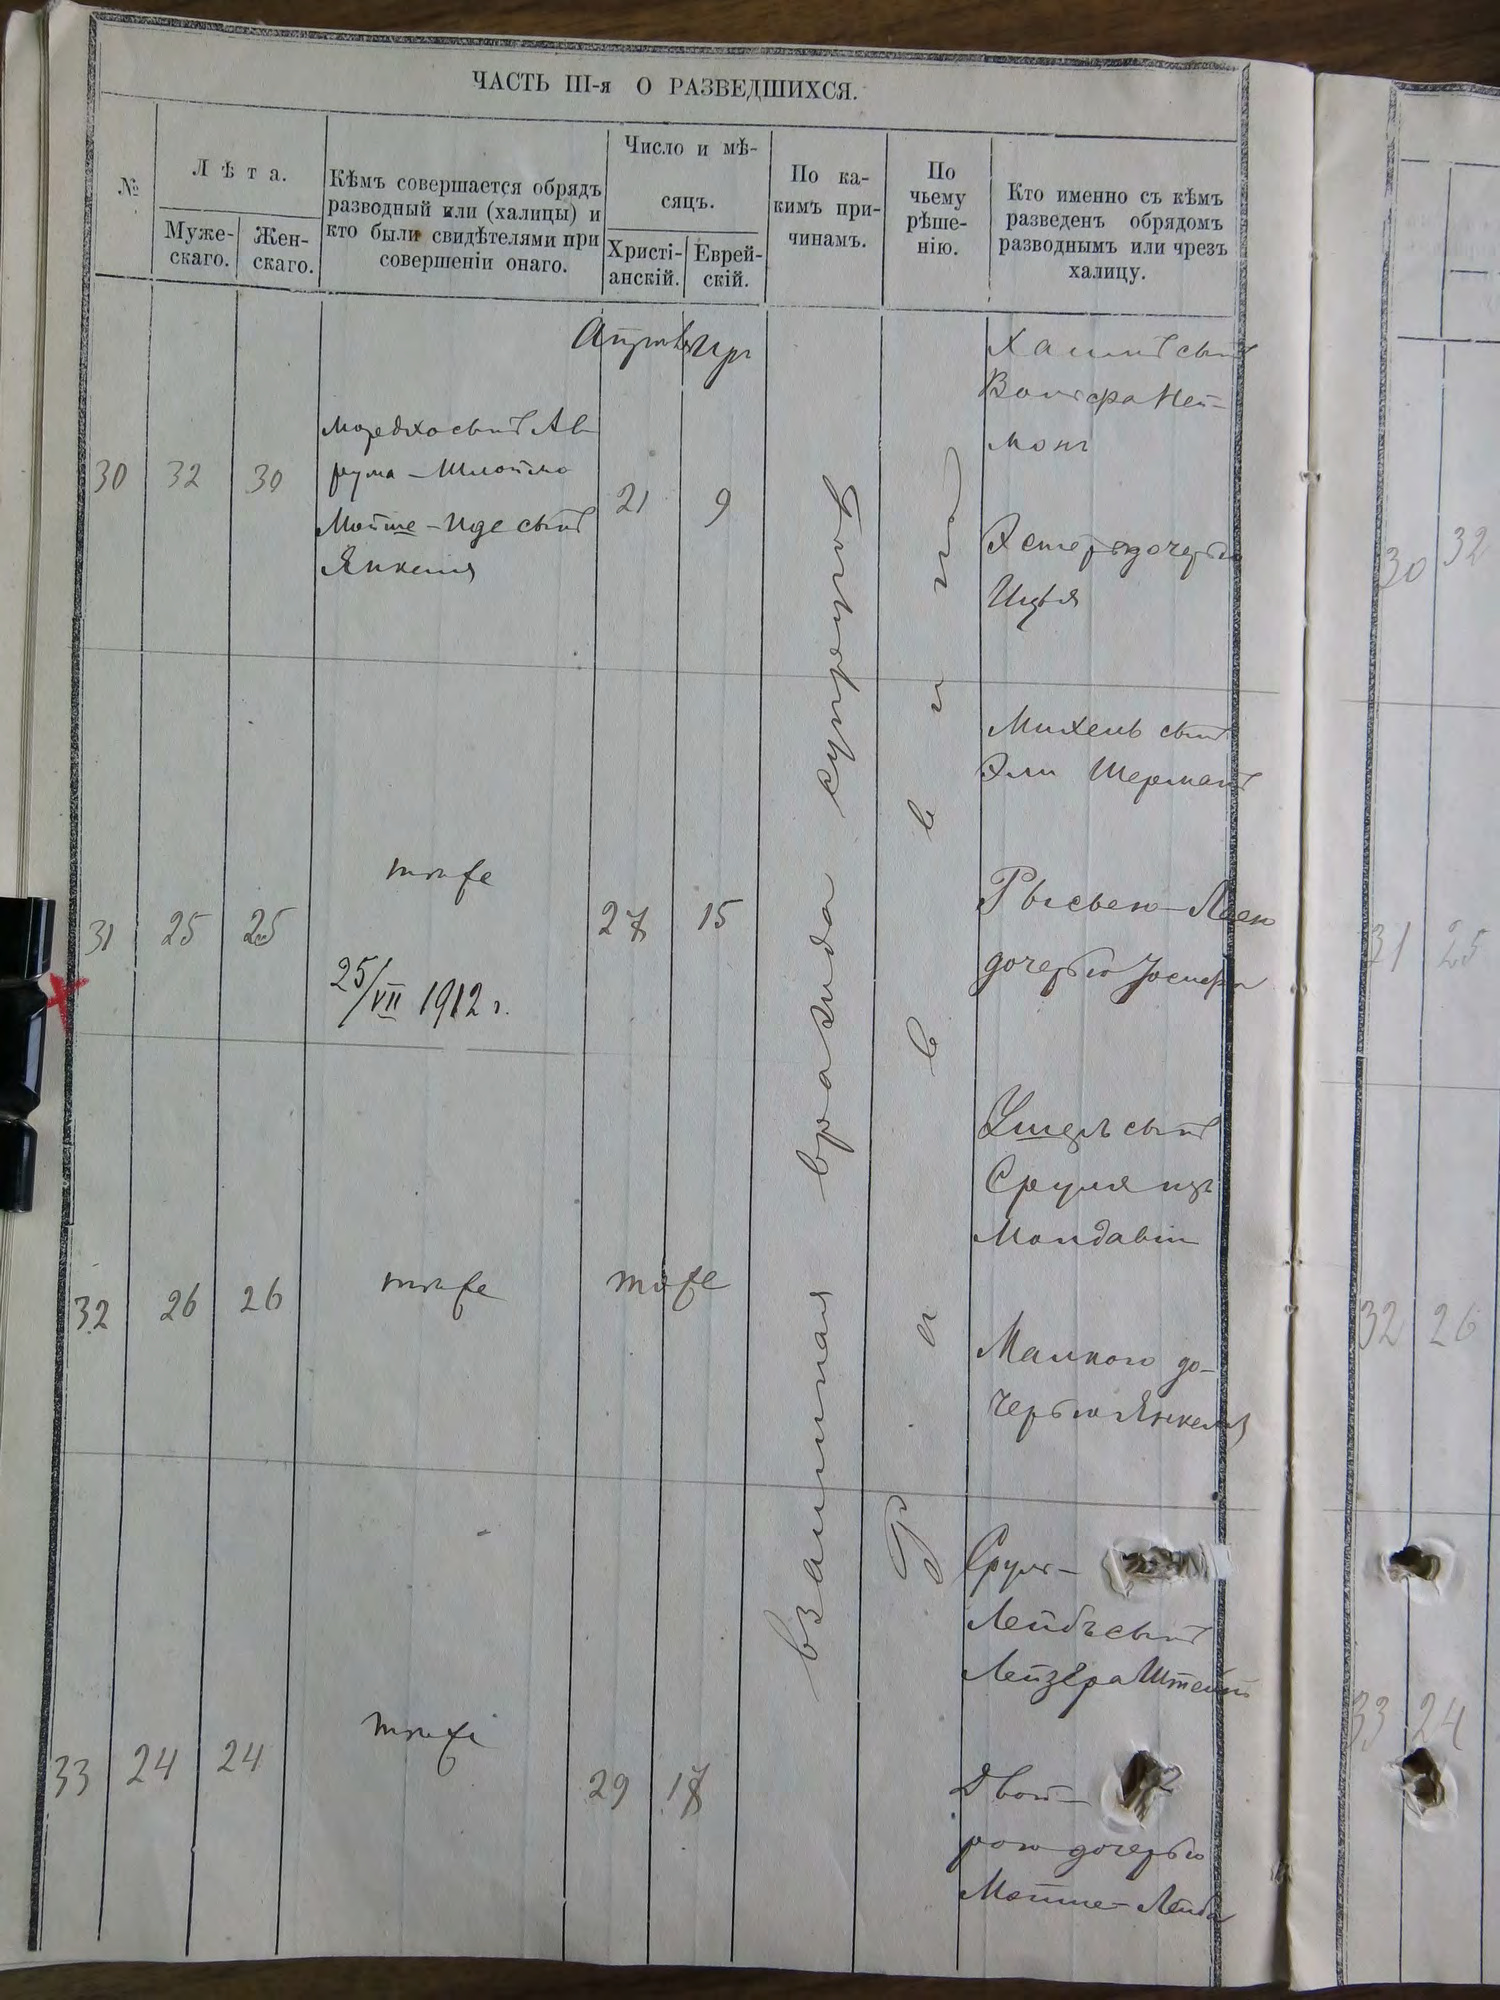 ЧАСТЬ III-я О РАЗВЕДШИХСЯ.
№
Лѣта.
Муже-
скаго.
Жен-
скаго.
Кѣмъ совершается обрядъ
разводный или (халицы) и
кто были свидѣтелями при
совершеніи онаго.
Число и мѣ-
сяцъ.
Христі-
анскій.
Еврей-
скій.
По ка-
кимъ при-
чинамъ.
По
чьему
рѣше-
нію.
Кто именно съ кѣмъ
разведенъ обрядомъ
разводнымъ или чрезъ
халицу.
30
32
30
Мордхо сынъ Ав
рума-Шлоймо
Мойше-Иде сынъ
Янкеля
Апрѣль
Иръ
21
9
взаимная вражда супруговъ
Раввина
Хаимъ сынъ
Вольфа Ней-
манъ
Эстерь дочерью
Ицъя
31
25
25
тоже
25/VII 1912 г.
27
15
Михель сынъ
Эли Шерманъ
Рысьею-Леею
дочерью Іосифа
32
26
26
тоже
тоже
Ушеръ сынъ
Сруля изъ
Молдавіи
Малкою до-
черью Янкеля
33
24
24
тоже
29
17
Сруль-
Лейбъ сынъ
Лейзера Штейнъ
Двой-
рою дочерью
Мойше-Лейба
30
32
31
25
32
26
33
24